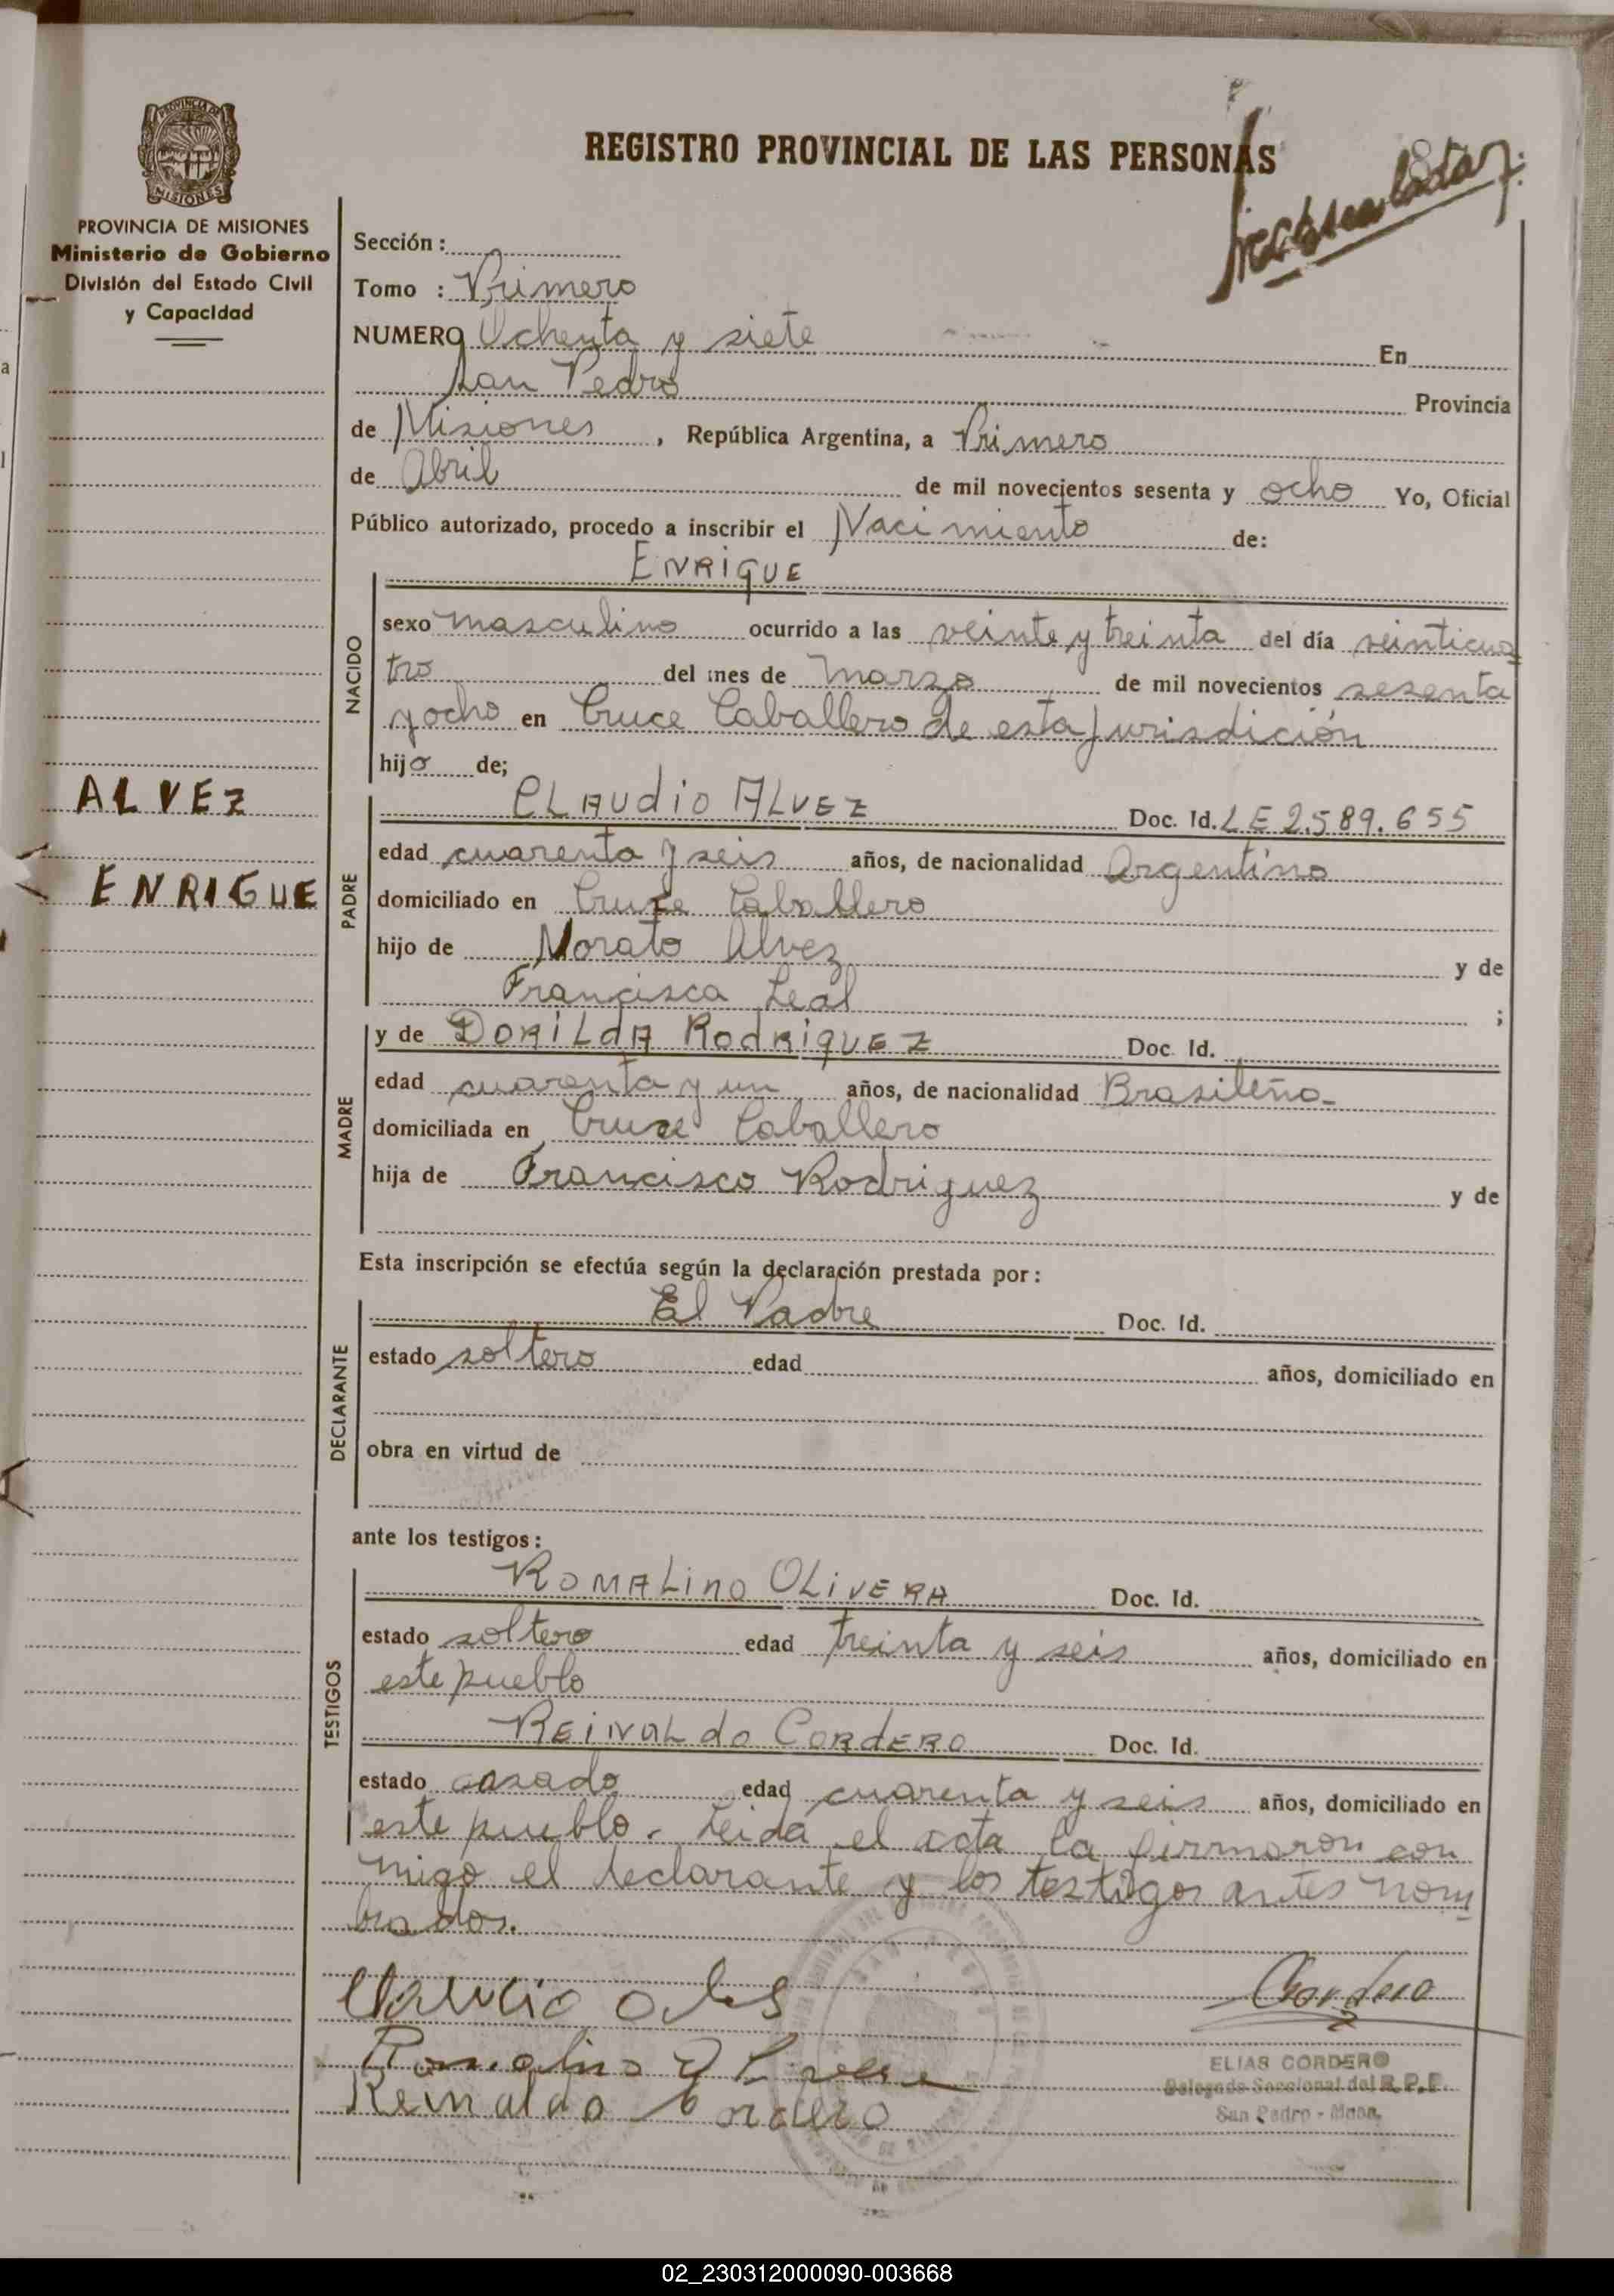 REGISTRO PROVINCIAL DE LAS PERSONAS
87
PROVINCIA DE MISIONES
Ministerio de Gobierno
División del Estado Civil
y Capacidad
Sección:
Tomo : Primero
NUMERO Ochenta y siete En
San Pedro Provincia
de Misiones, República Argentina, a Primero
de Abril de mil novecientos sesenta y ocho Yo, Oficial
Público autorizado, procedo a inscribir el Nacimiento de:
ENRIQUE
NACIDO
sexo masculino ocurrido a las veinte y treinta del día veinticua
tro del mes de marzo de mil novecientos sesenta
y ocho en Cruce Caballero de esta Jurisdición
hijo de;
ALVEZ
ENRIGUE
PADRE
CLAUdio ALVEZ Doc. Id. LE 2.589.655
edad cuarenta y seis años, de nacionalidad Argentino
domiciliado en Cruze Caballero
hijo de Morato Alvez y de
Francisca Leal ;
MADRE
y de DORILdA RodRiguEZ Doc. Id.
edad cuarenta y un años, de nacionalidad Brasileña-
domiciliada en Cruze Caballero
hija de Francisco Rodriguez y de
Esta inscripción se efectúa según la declaración prestada por:
DECLARANTE
El Padre Doc. Id.
estado soltero edad años, domiciliado en
obra en virtud de
ante los testigos:
TESTIGOS
ROMALino OLivERA Doc. Id.
estado soltero edad treinta y seis años, domiciliado en
este pueblo
REiNALdo CORdERO Doc. Id.
estado casado edad cuarenta y seis años, domiciliado en
este pueblo. Leida el acta la firmaron con
migo el declarante y los testigos antes nom
brados.
Cordero
Reinaldo Cordero
ELIAS CORDERO
Delegado Seccional del R.P.P.
San Pedro - Mnes.
02_230312000090-003668